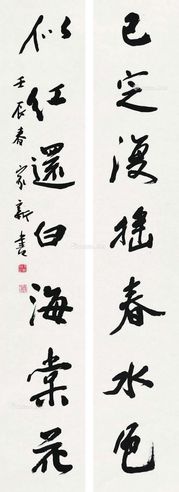 已定復搖春水色
似紅還白海棠花
壬辰春家新書